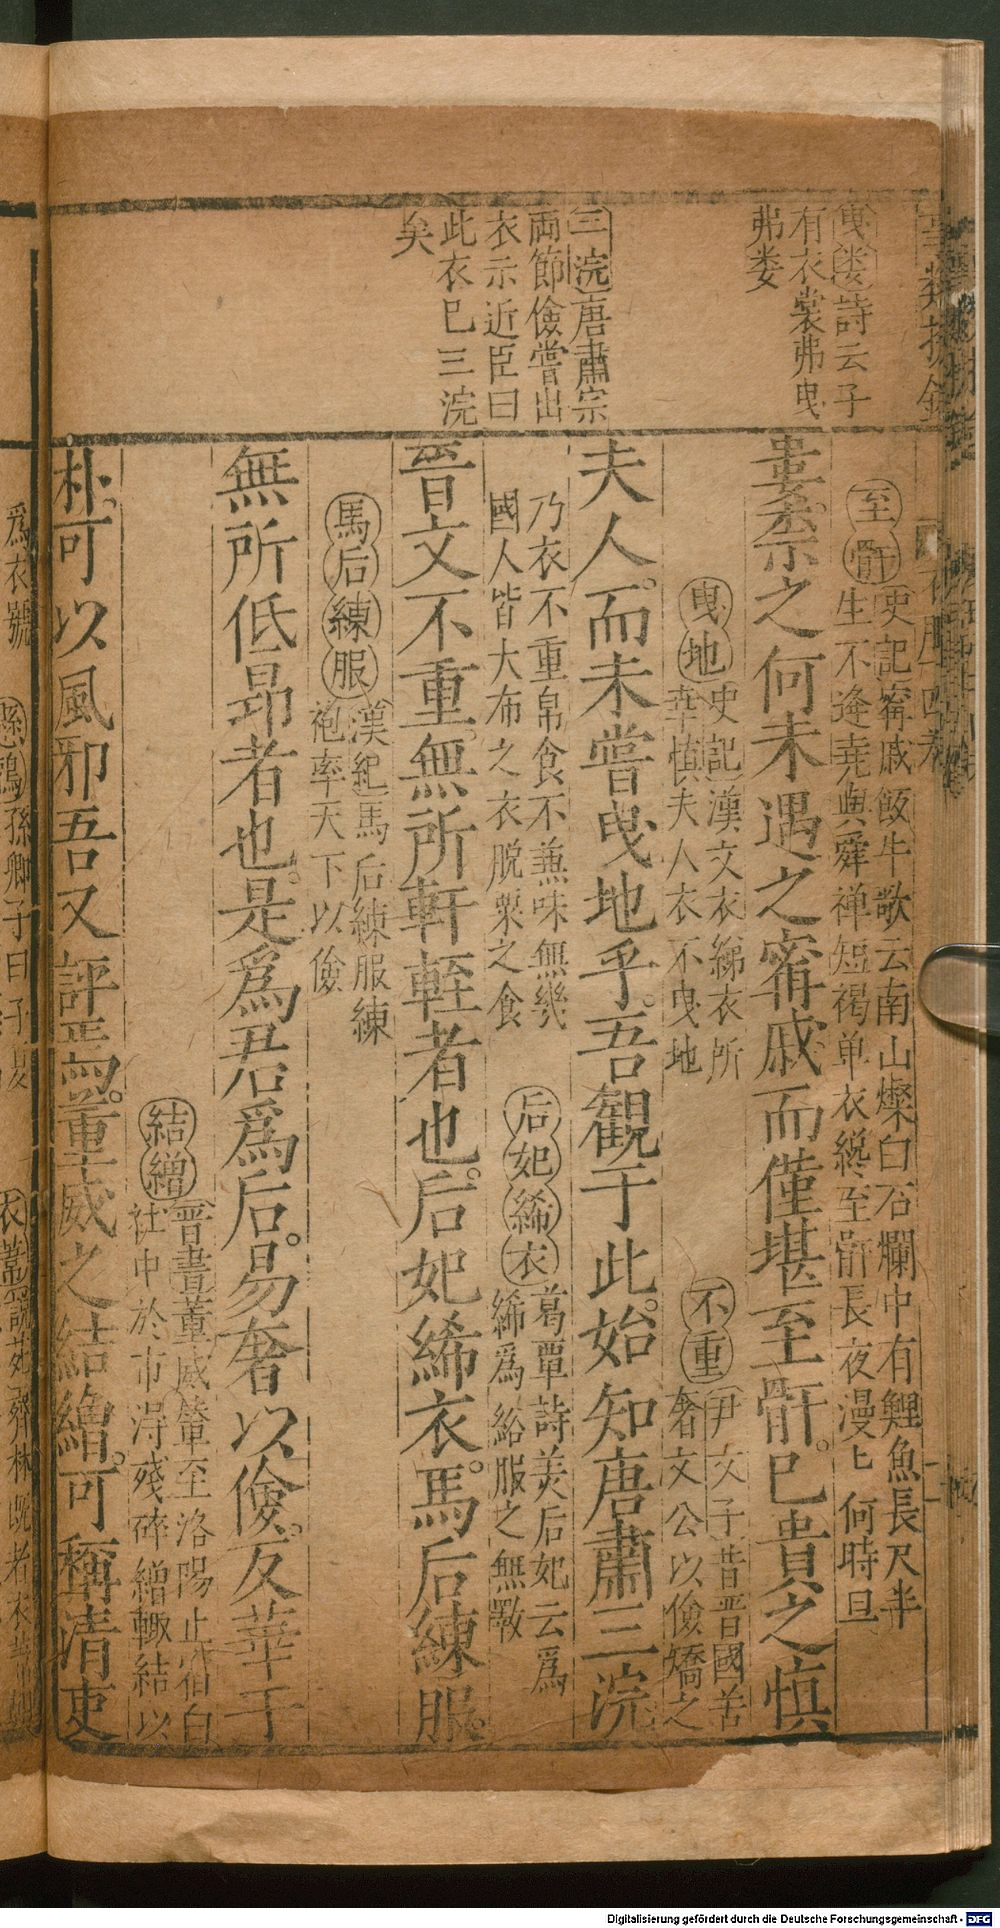 曳娄詩云子
有衣裳弗曳
弗娄
三浣唐肅宗
両節儉嘗出
衣示近臣曰
此衣巳三浣
矣
至骭史記甯戚飯牛歌云南山燦白石爛中有鯉魚長尺半
生不逄尭與舜禅短褐单衣終至骭長夜漫〻何時旦
婁奈之何未遇之甯戚而僅堪至骭巳貴之慎
曳地史記漢文衣綈衣所
幸慎夫人衣不曳地
不重尹文子昔晋國苦
奢文公以儉矯之
夫人而未嘗曳地乎吾觀于此始知唐肅三浣
乃衣不重帛食不兼味無幾
國人皆大布之衣脫粟之食
后妃絺衣葛覃詩美后妃云為
絺為綌服之無斁
晋文不重無所軒輊者也后妃絺衣馬后練服
馬后練服漢紀馬后練服練
袍率天下以儉
無所低昻者也是為君為后易奢以儉反華于
結繒晋書董威輦至洛陽止宿白
社中於市淂殘碎繒輙結以
朴可以風邪吾又評焉董威之結繒可稱清吏
爲衣號
孫卿子曰子夏
Digitalisierung gefördert durch die Deutsche Forschungsgemeinschaft - DFG